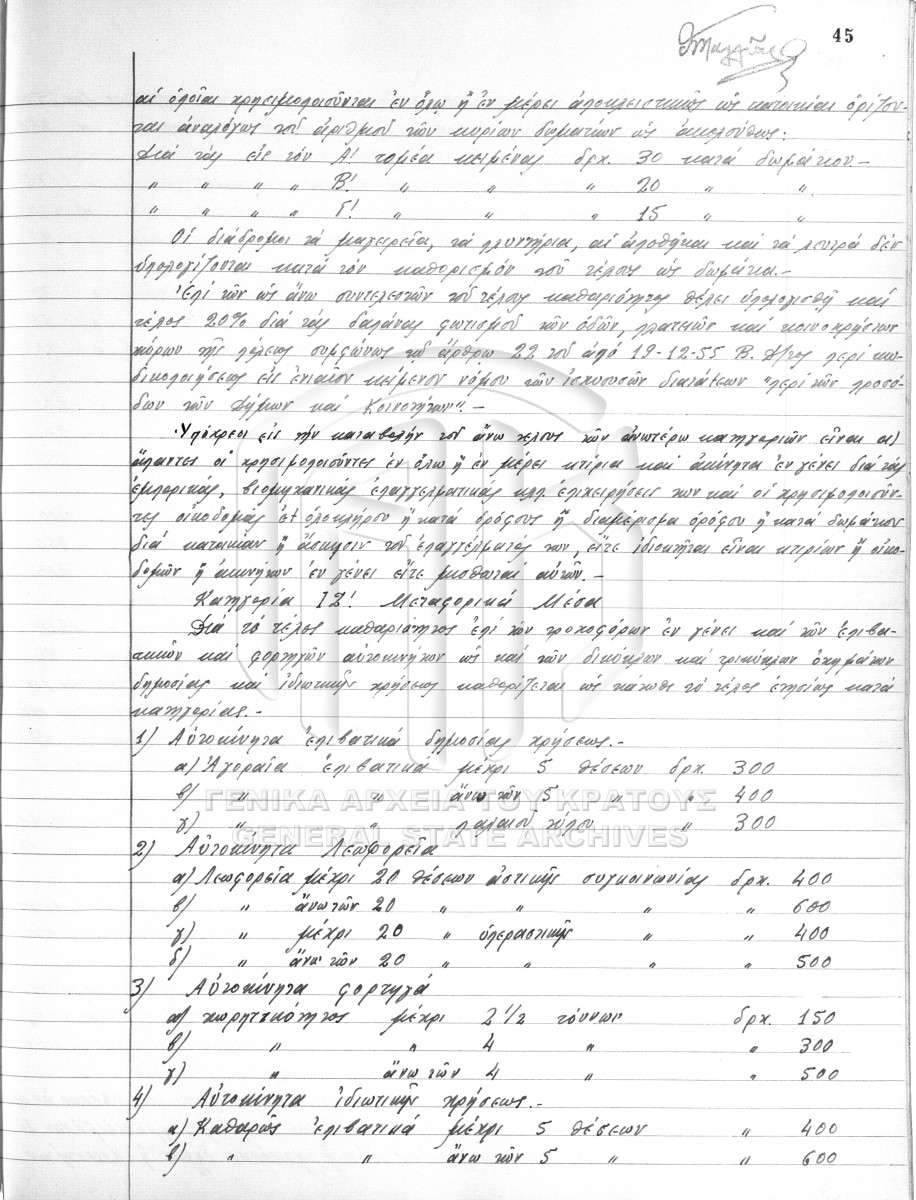 45
αἱ ὁποῖαι χρησιμοποιοῦνται ἐν ὅλῳ ἤ ἐν μέρει ἀποκλειστικῶς ὡς κατοικίαι ὁρίζον-
ται ἀναλόγως τοῦ ἀριθμοῦ τῶν κυρίων δωματίων ὡς ἀκολούθως:
Διά τάς εἰς τόν Α! τομέα κειμένας δρχ. 30 κατά δωμάτιον.-
" " " " Β! " " " 20 " ".
" " " " Γ! " " " 15 " "
Οἱ διάδρομοι τά μαγειρεῖα, τά πλυντήρια, αἱ ἀποθῆκαι καί τά λουτρά δέν
ὑπολογίζονται κατά τόν καθορισμόν τοῦ τέλους ὡς δωμάτια.-
Ἐπί τῶν ὡς ἄνω συντελεστῶν τοῦ τέλους καθαριότητος θέλει ὑπολογισθῆ καί
τέλος 20% διά τάς δαπάνας φωτισμοῦ τῶν ὁδῶν, πλατειῶν καί κοινοχρήστων
χώρων τῆς πόλεως συμφώνως τῷ ἄρθρῳ 22 τοῦ ἀπό 19-12-55 Β. Δ/τος περί κω-
δικοποιήσεως εἰς ἑνιαῖον κείμενον νόμου τῶν ἰσχυουσῶν διατάξεων "περί τῶν προσό-
δων τῶν Δήμων καί Κοινοτήτων".-
Ὑπόχρεοι εἰς τήν καταβολήν τοῦ ἄνω τέλους τῶν ἀνωτέρω κατηγοριῶν εἶναι α)
ἅπαντες οἱ χρησιμοποιοῦντες ἐν ὅλῳ ἤ ἐν μέρει κτίρια καί ἀκίνητα ἐν γένει διά τάς
ἐμπορικάς, βιομηχανικάς ἐπαγγελματικάς κλπ. ἐπιχειρήσεις των καί οἱ χρησιμοποιοῦν-
τες οἰκοδομάς ἐξ ὁλοκλήρου ἤ κατά ὀρόφους ἤ διαμέρισμα ὀρόφου ἤ κατά δωμάτιον
διά κατοικίαν ἤ ἄσκησιν τοῦ ἐπαγγέλματός των, εἴτε ἰδιοκτῆται εἶναι κτιρίων ἤ οἰκο-
δομῶν ἤ ἀκινήτων ἐν γένει εἴτε μισθωταί αὐτῶν.-
Κατηγορία ΙΖ! Μεταφορικά Μέσα
Διά τό τέλος καθαριότητος ἐπί τῶν τροχοφόρων ἐν γένει καί τῶν ἐπιβα-
τικῶν καί φορτηγῶν αὐτοκινήτων ὡς καί τῶν δικύκλων καί τρικύκλων ὀχημάτων
δημοσίας καί ἰδιωτικῆς χρήσεως καθορίζεται ὡς κάτωθι τό τέλος ἐτησίως κατά
κατηγορίας.-
1) Αὐτοκίνητα ἐπιβατικά δημοσίας χρήσεως.-
α) Ἀγοραῖα ἐπιβατικά μέχρι 5 θέσεων δρχ. 300
β) " " ἄνω τῶν 5 " " 400
γ) " " παλαιοῦ τύπου " 300
ΓΕΝΙΚΑ ΑΡΧΕΙΑ ΤΟΥ ΚΡΑΤΟΥΣ
GENERAL STATE ARCHIVES
2) Αὐτοκίνητα Λεωφορεῖα
α) Λεωφορεῖα μέχρι 20 θέσεων ἀστικῆς συγκοινωνίας δρχ. 400
β) " ἄνω τῶν 20 " " " " 600
γ) " μέχρι 20 " ὑπεραστικῆς " " 400
δ) " ἄνω τῶν 20 " " " " 500
3) Αὐτοκίνητα φορτηγά
α) χωρητικότητος μέχρι 2 1/2 τόννων δρχ. 150
β) " " 4 " " 300
γ) " ἄνω τῶν 4 " " 500
4) Αὐτοκίνητα ἰδιωτικῆς χρήσεως.-
α) Καθαρῶς ἐπιβατικά μέχρι 5 θέσεων " 400
β) " " ἄνω τῶν 5 " " 600